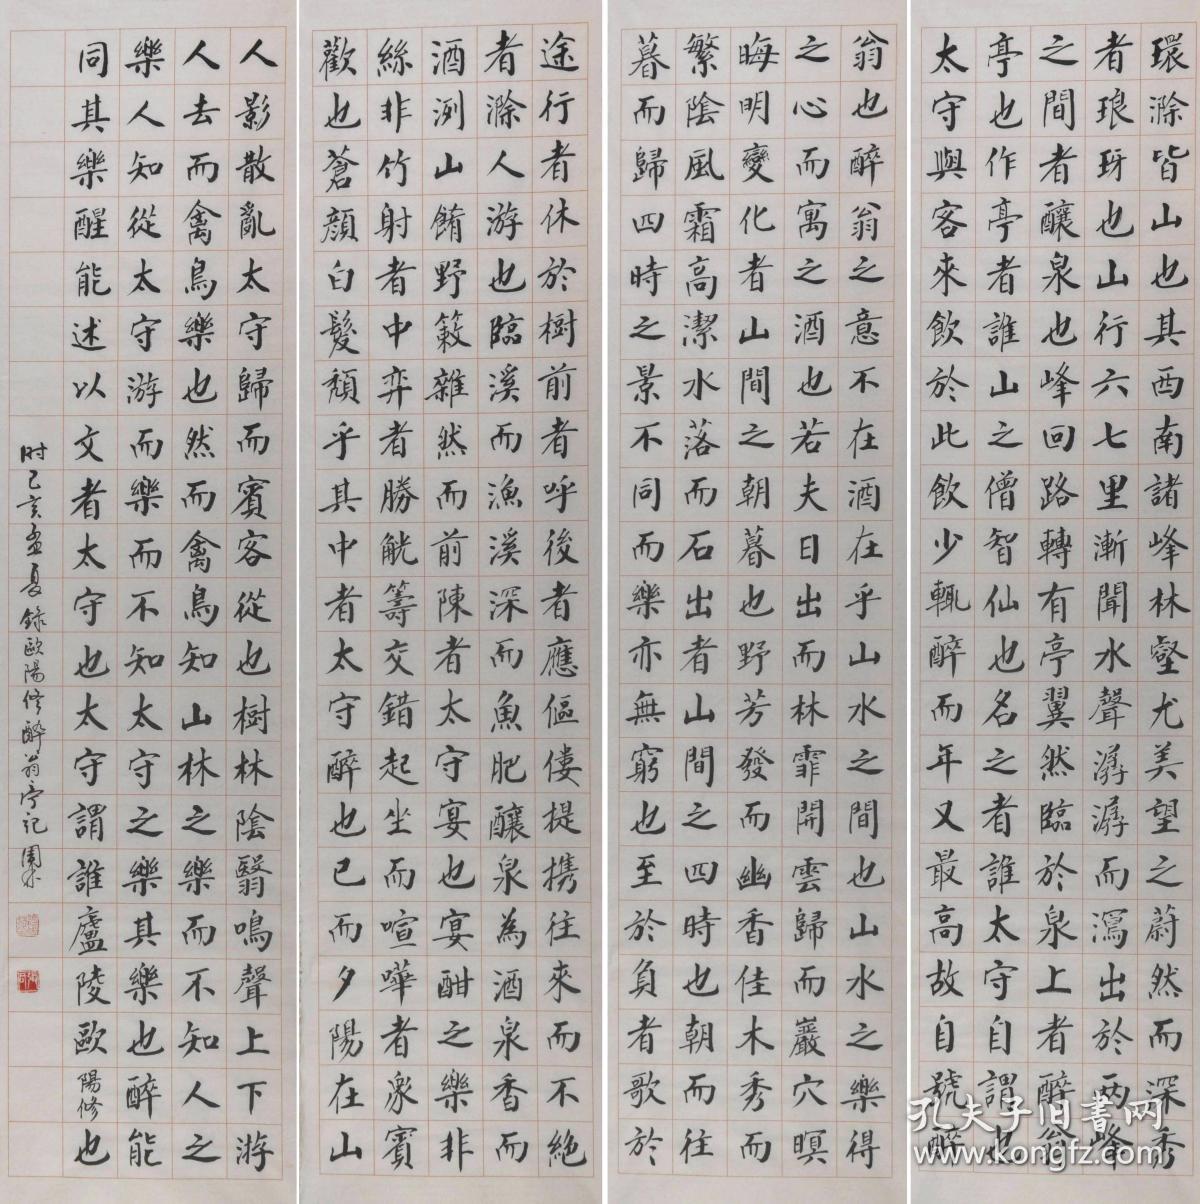 環滁皆山也其西南諸峰林壑尤美望之蔚然而深秀
者琅玡也山行六七里漸聞水聲潺潺而瀉出於兩峰
之間者釀泉也峰回路轉有亭翼然臨於泉上者醉翁
亭也作亭者誰山之僧智仙也名之者誰太守自謂也
太守與客來飲於此飲少輒醉而年又最高故自號醉
翁也醉翁之意不在酒在乎山水之間也山水之樂得
之心而寓之酒也若夫日出而林霏開雲歸而巖穴暝
晦明變化者山間之朝暮也野芳發而幽香佳木秀而
繁陰風霜高潔水落而石出者山間之四時也朝而往
暮而歸四時之景不同而樂亦無窮也至於負者歌於
途行者休於樹前者呼後者應傴僂提携往來而不絕
者滁人游也臨溪而漁溪深而魚肥釀泉為酒泉香而
酒洌山餚野蔌雜然而前陳者太守宴也宴酣之樂非
絲非竹射者中弈者勝觥籌交錯起坐而喧嘩者衆賓
歡也蒼顏白髮頹乎其中者太守醉也已而夕陽在山
人影散亂太守歸而賓客從也樹林陰翳鳴聲上下游
人去而禽鳥樂也然而禽鳥知山林之樂而不知人之
樂人知從太守游而樂而不知太守之樂其樂也醉能
同其樂醒能述以文者太守也太守謂誰廬陵歐陽修也
时己亥孟夏錄歐陽修醉翁亭记
孔夫子旧书网
www.kongfz.com